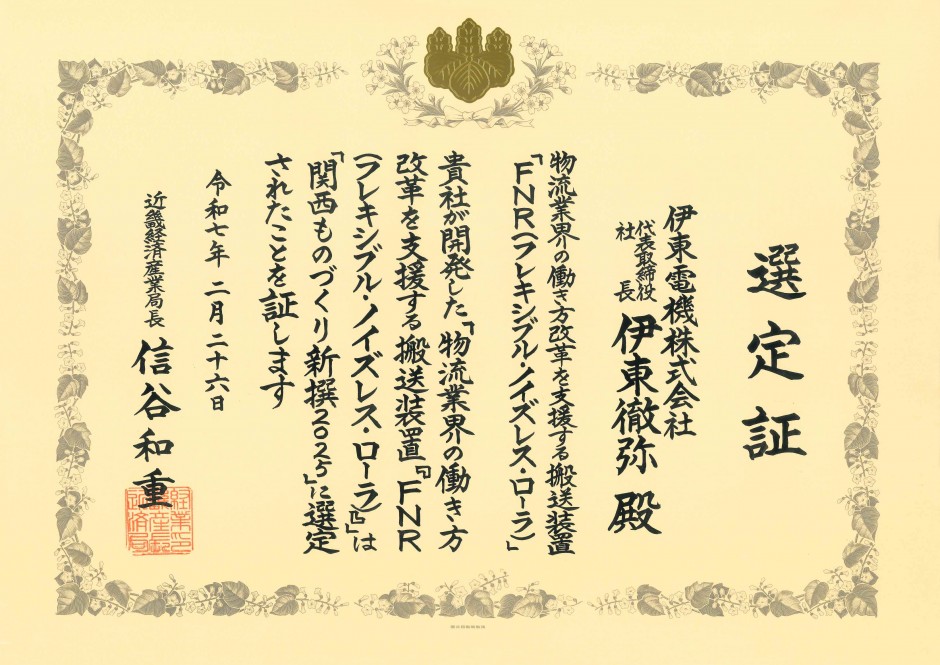 選定証
伊東電機株式会社
代表取締役
社長
伊東徹弥殿
物流業界の働き方改革を支援する搬送装置
「FNR(フレキシブル・ノイズレス・ローラ)」
貴社が開発した「物流業界の働き方
改革を支援する搬送装置『FNR
(フレキシブル・ノイズレス・ローラ)』」は
「関西ものづくり新撰2025」に選定
されたことを証します
令和七年 二月二十六日
近畿経済産業局長
信谷和重